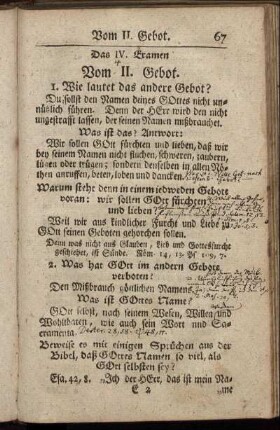 Vom II. Gebot. 67
Das IV. Examen
Vom II. Gebot.
1. Wie lautet das andere Gebot?
Du sollst den Namen deines GOttes nicht un-
nützlich führen. Denn der HErr wird den nicht
ungestrafft lassen, der seinen Namen mißbrauchet.
Was ist das? Antwort:
Wir sollen GOtt fürchten und lieben, daß wir
bey seinem Namen nicht fluchen, schweren, zaubern,
lügen oder trügen; sondern denselben in allen Nö-
then anruffen, beten, loben und dancken.
Warum stehr denn in einem iedweden Gebote
voran: wir sollen GOtt fürchten
und lieben?
Weil wir aus kindlicher Furcht und Liebe
GOtt seinen Geboten gehorchen sollen.
Denn was nicht aus Glauben, Lieb und Gottesfurcht
geschiehet, ist Sünde. Röm. 14, 23. Ps. 119, 7.
2. Was hat GOtt im andern Gebote
verboten?
Den Mißbrauch göttlichen Namens.
Was ist GOttes Name?
GOtt selbst, nach seinem Wesen, Willen und
Wohlthaten, wie auch sein Wort und Sa-
cramenta.
Beweise es mit einigen Sprüchen aus der
Bibel, daß GOttes Namen so viel, als
GOtt selbsten sey?
Esa. 42, 8. „Ich der HErr, das ist mein Na-
E 2 „me